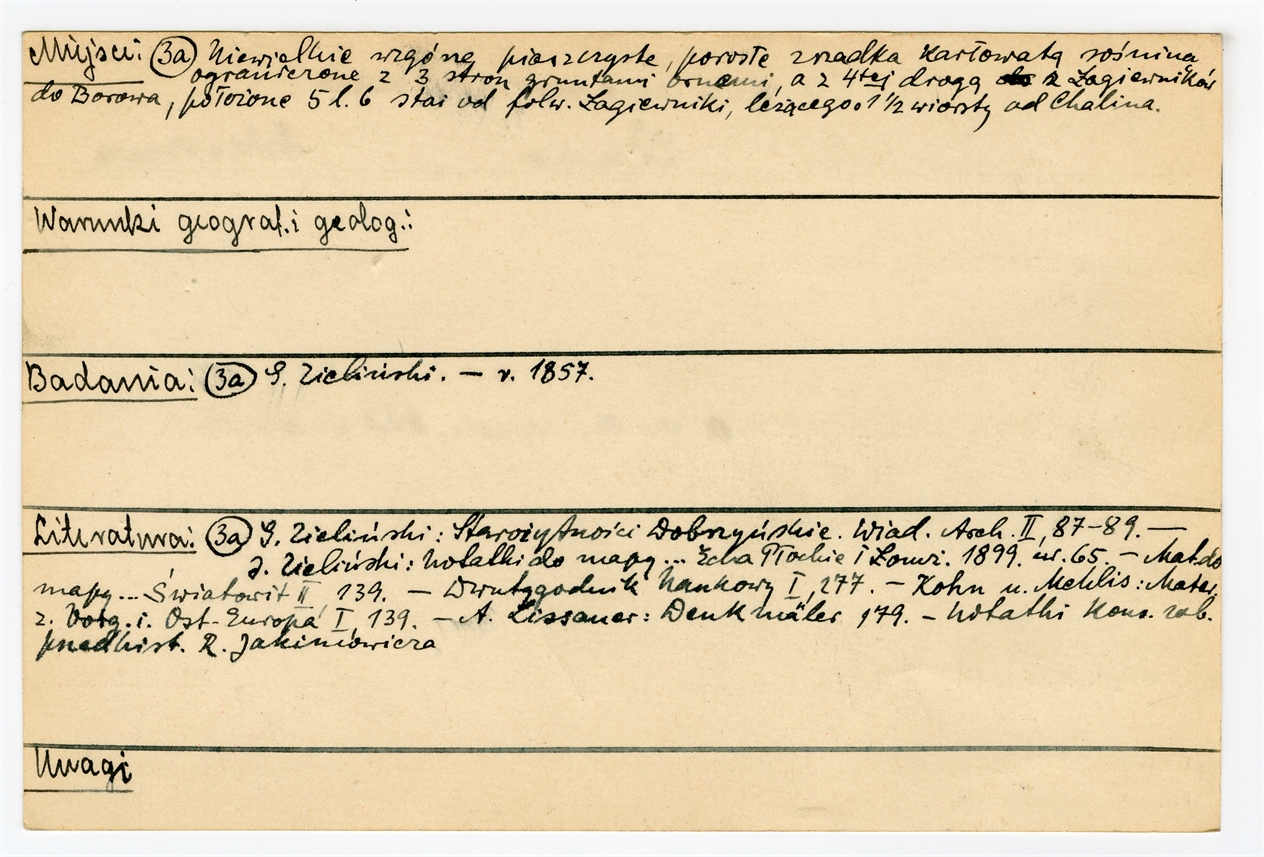 Miejsce: (3a) Niewielkie wzgórze piaszczyste, porosłe zrzadka karłowatą sośniną
ograniczone z 3 stron gruntami ornemi, a z 4tej drogą z Łagiewników
do Borowa, położone 5 l. 6 stai od folw. Łagiewniki, leżącego o 1 1/2 wiorsty od Chalina.
Warunki geograf. i geolog.:
Badania: (3a) G. Zieliński. — r. 1857.
Literatura: (3a) G. Zieliński: Starożytności Dobrzyńskie. Wiad. Arch. II, 87-89. —
J. Zieliński: Notatki do mapy... Echa Płockie i Łomż. 1899. nr. 65. — Mat. do
mapy... Światowit II 139. — Dwutygodnik Naukowy I, 277. — Kohn u. Mehlis: Mater.
z. Vorg. i. Ost-Europa I, 139. — A. Lissauer: Denkmäler 179. — Notatki Kons. zab.
przedhist. R. Jakimowicza
Uwagi